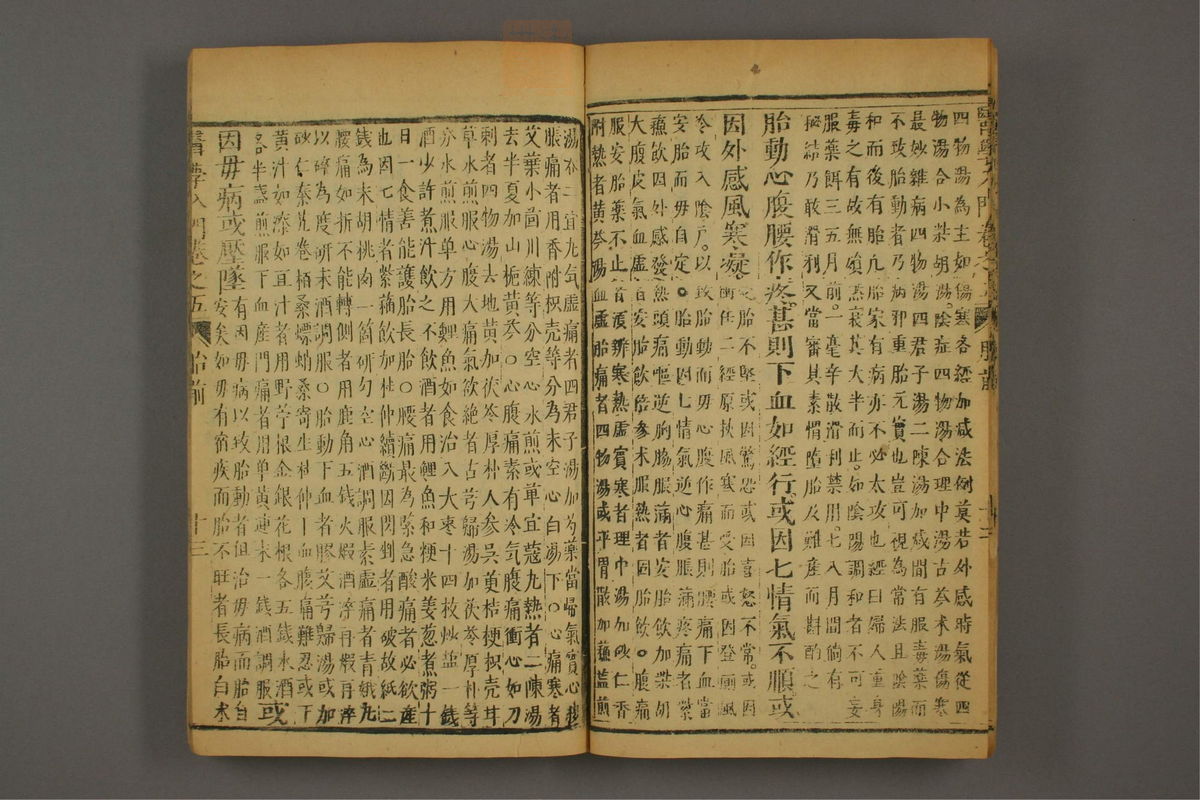 四物湯為主如傷寒各經加減法例莫若外感時氣從四
物湯合小柴胡湯陰症四物湯合理中湯古芩朮湯傷寒
最妙雜病四物湯四君子湯二陳湯加減間有服毒藥而
不致胎動者乃病邪重胎元實也豈可視為常法且陰陽
和而後有胎凡胎家有病亦不必太攻也經曰婦人重身
毒之有故無殞衰其大半而止如陰陽調和者不可妄
服藥餌三五月前一毫辛散滑利禁用七八月間倘有
擬結乃敢滑利又當審其素慣墮胎及難產而斟酌之
胎動心腹腰作疼甚則下血如經行或因七情氣不順或
因外感風寒凝
胎不堅或因驚恐或因喜怒不常或因
衝任二經原挾風寒而受胎或因登廁風
冷攻入陰戶以致胎動而毋心腹作痛甚則腰痛下血當
安胎而毋自定。胎動因七情氣逆心腹脹滿疼痛者紫
蘇飲因外感發熱頭痛嘔逆胸脇脹滿者安胎飲加柴胡
大腹皮氣血虛安胎飲倍參朮服熱者固胎飲。腹痛
服安胎藥不止者須辨寒熱虛實寒者理中湯加砂仁香
附熱者黃芩湯血虛胎痛者四物湯或平胃散加蘇鹽煎
湯亦二宜九气虛痛者四君子湯加芍藥當歸氣實心
脹痛者用香附枳壳等分為末空心白湯下○心痛寒者
艾葉小茴川練等分空心水煎或草宜蔻九熱者二陳湯
去半夏加山梔黃芩○心腹痛素有冷气腹痛衝心如刀
刺者四物湯去地黃加茯苓厚朴人參吳萸桔梗枳壳甘
草水煎服心腹大痛气欲絕者古芎歸湯加茯苓厚朴等
分水煎服单方用鯉魚如食治入大枣十四枚炒盐一錢
酒少許煮汁飲之不飲酒者用鯉魚和粳米姜葱煮粥十
日一食善能護胎長胎○腰痛最為緊急酸痛者必飲產
也因七情者紫蘓飲加杜仲續斷因閃剉者用破故紙二
錢為末胡挑肉一箇研勻空心酒調服素虛痛者青娥丸
腰痛如折不能轉側者用鹿角五錢火煅酒淬再煅再淬
以碎為度研末酒調服○胎動下血者膠艾芎歸湯或加
砂仁秦艽卷栢桑螵蛸桑寄生杜仲下血腹痛難忍或下
黃汁如漆如豆汁者用野苧根金銀花根各五錢水酒
各半盏煎服下血產門痛者用单黃連末一錢酒調服或
因毋病或壓墜
有因毋病以致胎動者但治毋病而胎自
安矣如毋有宿疾而胎不旺者長胎白朮
醫學入門卷之五
胎前
十三